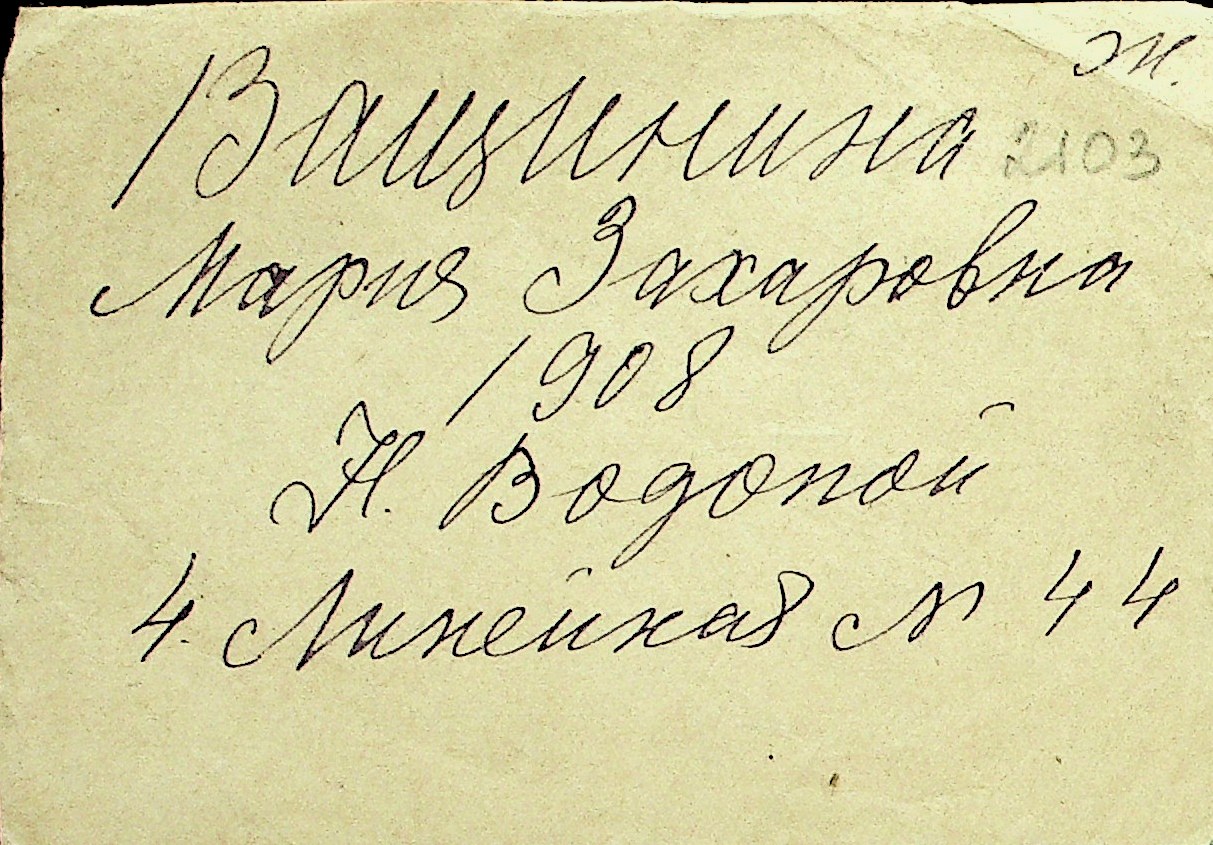 ж.
Ващинина
2103
Мария Захаровна
1908
Н. Водопой
4. Линейная № 44